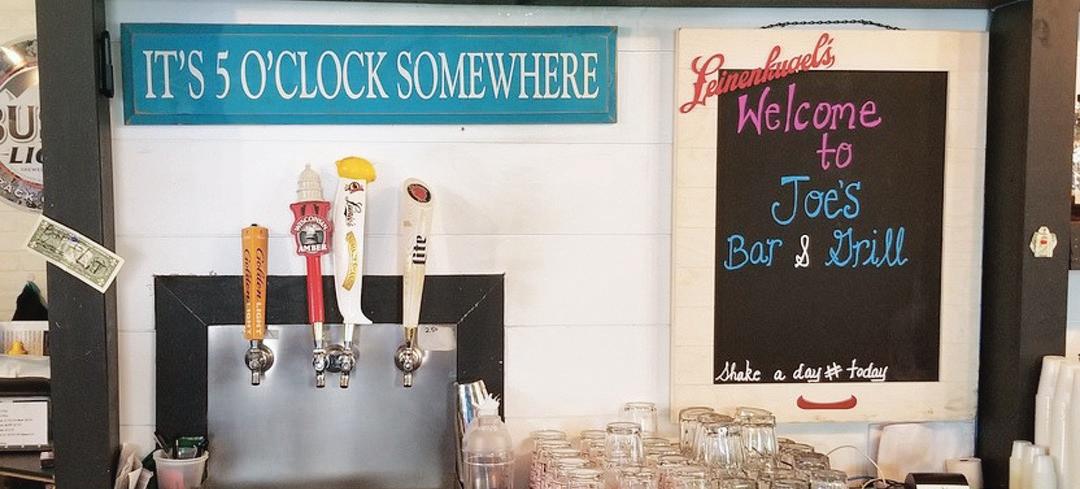 IT'S 5 O'CLOCK SOMEWHERE
Leinenkugel's
Welcome
to
Joe's
Bar & Grill
Shake a day # today
LIG
Golden LIGHT
WISCONSIN
AMBER
Lite